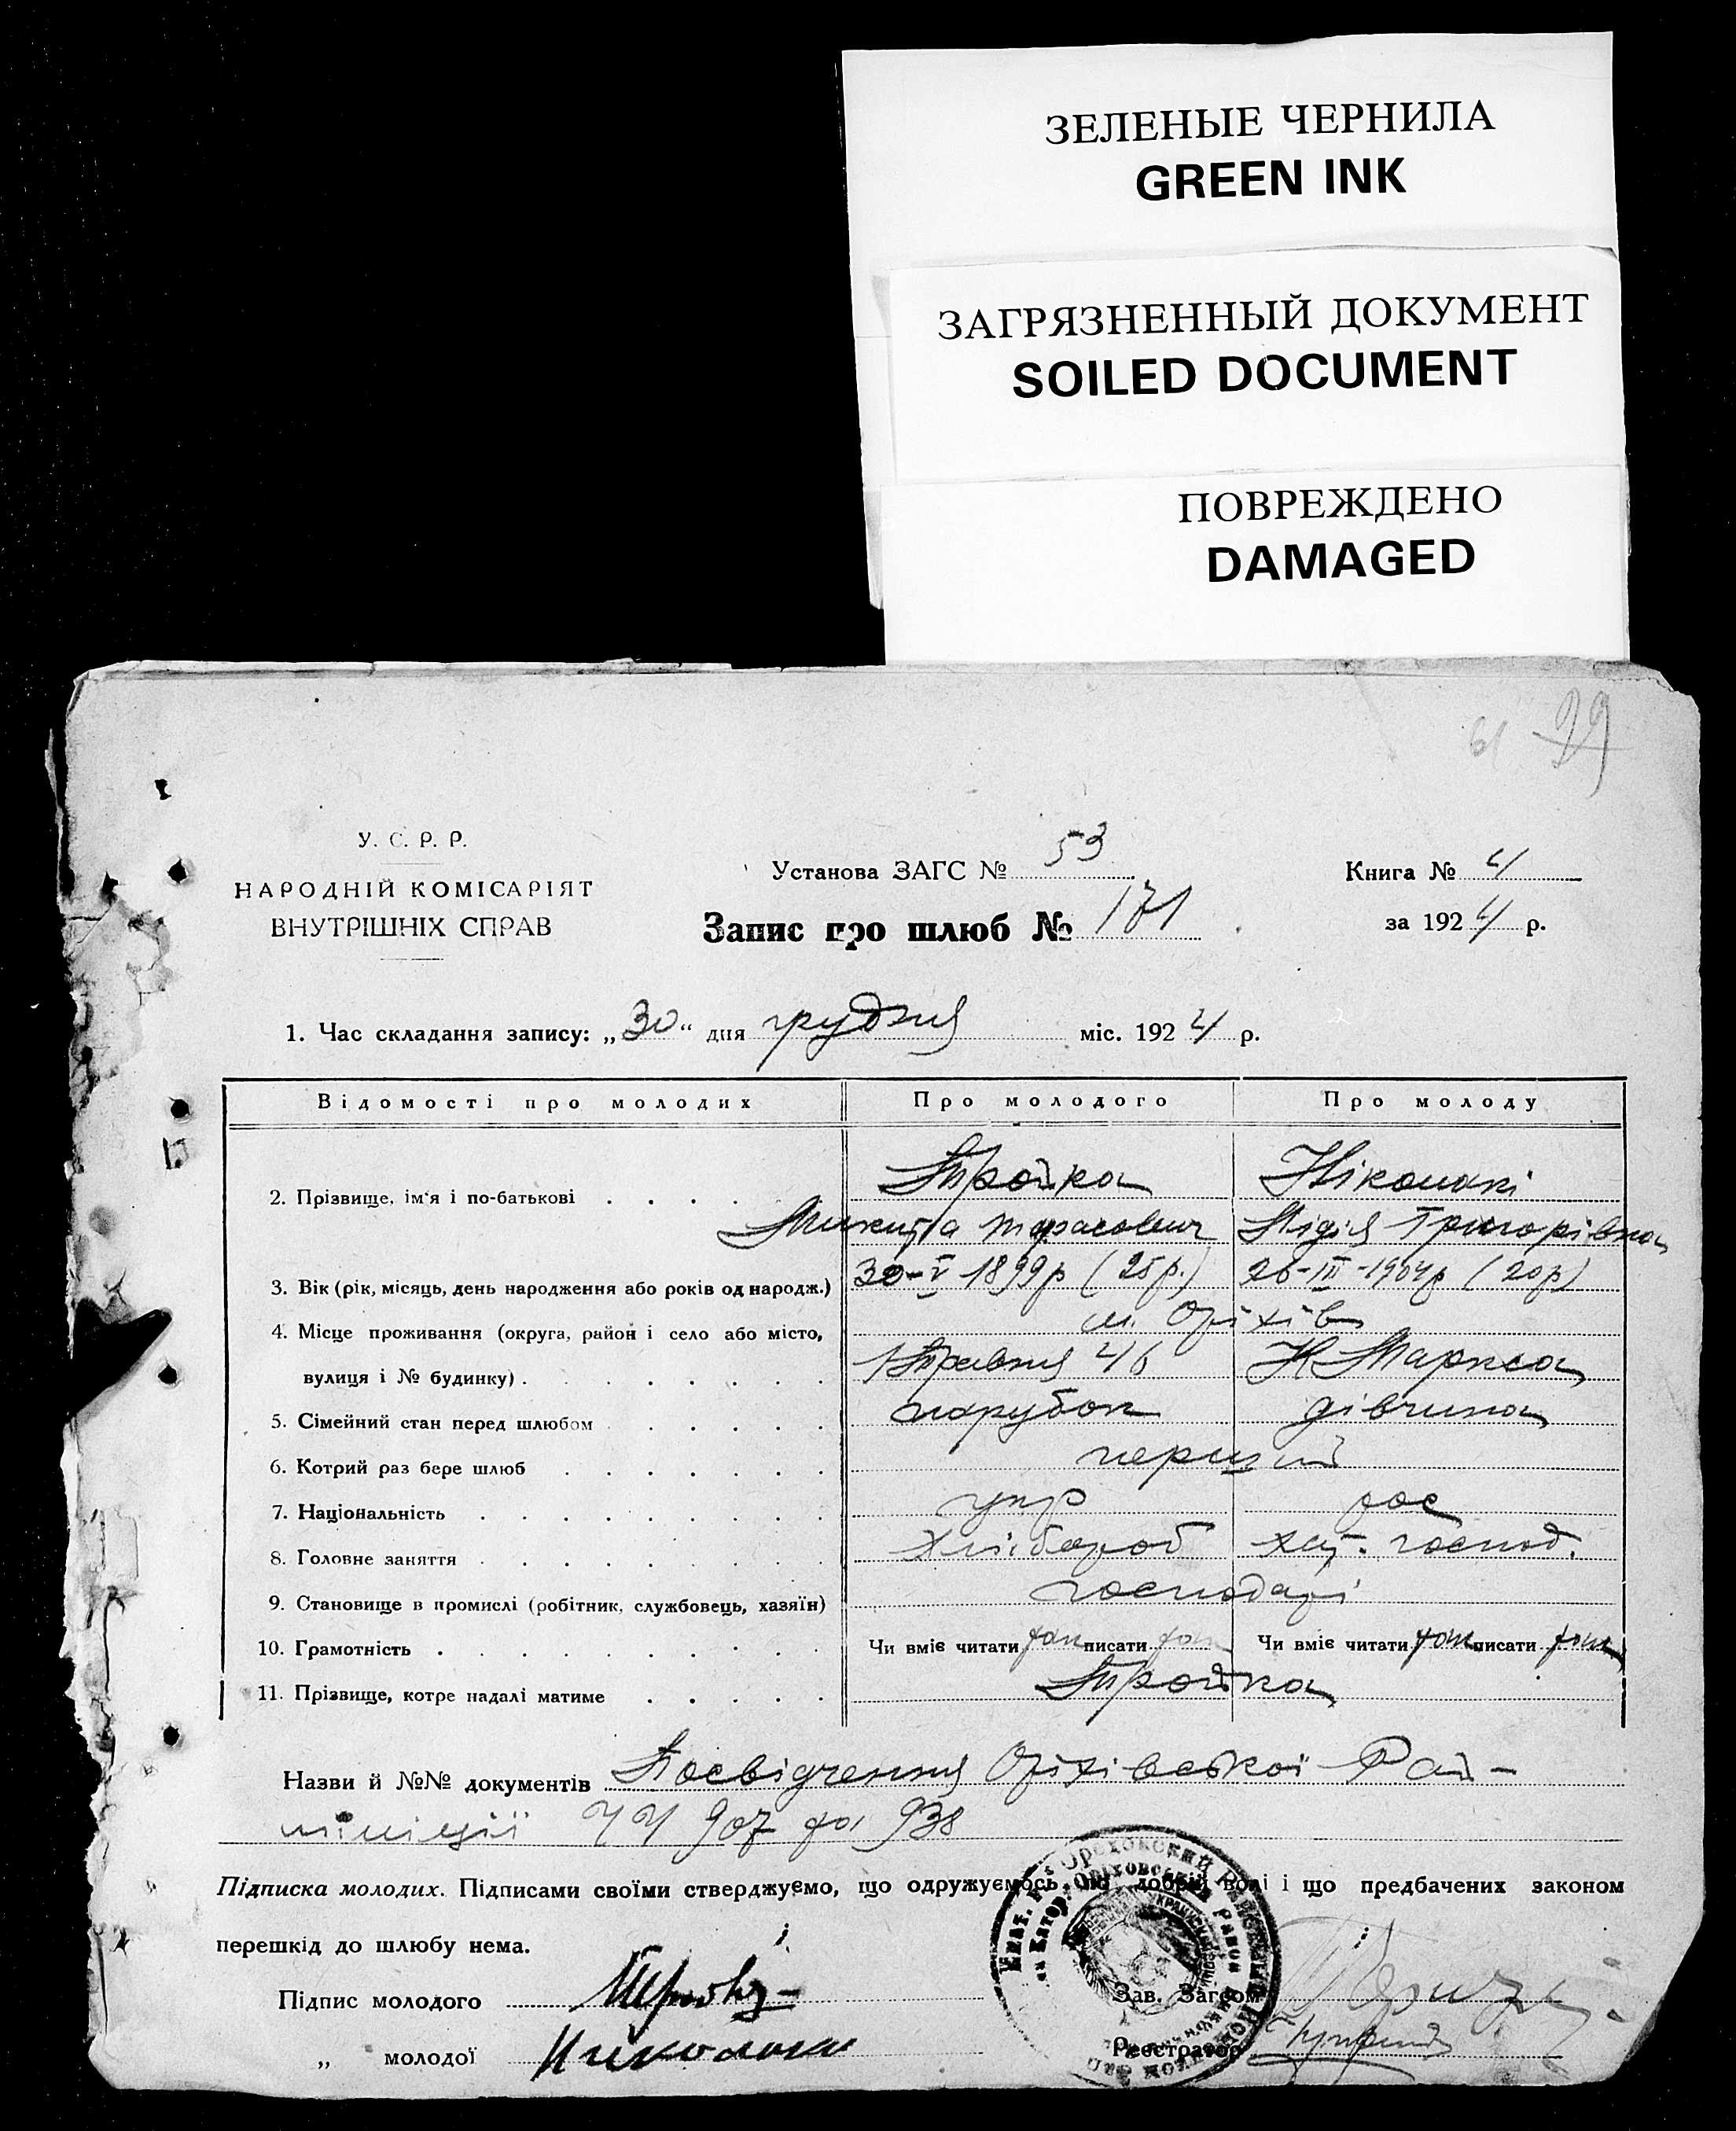 ЗЕЛЕНЫЕ ЧЕРНИЛА
GREEN INK
ЗАГРЯЗНЕННЫЙ ДОКУМЕНТ
SOILED DOCUMENT
ПОВРЕЖДЕНО
DAMAGED
61 99
У. С. Р. Р.
НАРОДНІЙ КОМІСАРІЯТ
ВНУТРІШНІХ СПРАВ
Установа ЗАГС № 53
Запис про шлюб № 171
Книга № 4
за 1924 р.
1. Час складання запису: „30“ дня грудня міс. 1924 р.
Відомості про молодих Про молодого Про молоду
2. Прізвище, ім'я і по-батькові Тройка Ніконакі
Микита Тарасович Лідія Григорівна
3. Вік (рік, місяць, день народження або років од народж.) 30-V 1899р (25р.) 26-III-1904р (20р)
4. Місце проживання (округа, район і село або місто, м. Оріхів
вулиця і № будинку) 1 Травня 46 К Маркса
5. Сімейний стан перед шлюбом парубок дівчина
6. Котрий раз бере шлюб перший
7. Національність укр рос
8. Головне заняття хлібороб хат. господ.
9. Становище в промислі (робітник, службовець, хазяїн) господарі
10. Грамотність Чи вміє читати так писати так Чи вміє читати так писати так
11. Прізвище, котре надалі матиме Тройка
Назви й №№ документів Посвідчення Оріхівської Рай-
міліції 907 та 938
Підписка молодих. Підписами своїми стверджуємо, що одружуємось по добрій волі і що предбачених законом
перешкід до шлюбу нема.
Підпис молодого
Зав. Загсом
„ молодої
Реєстратор